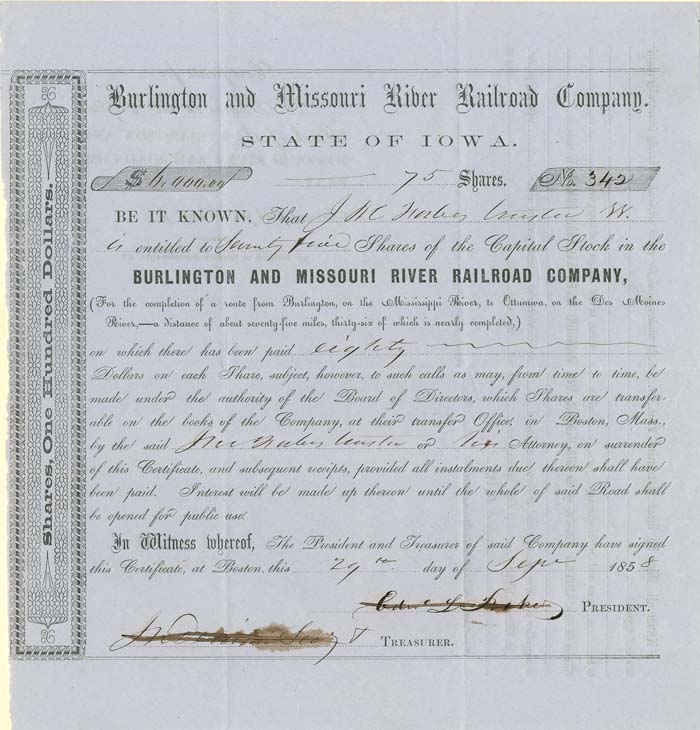 Shares, One Hundred Dollars.
Burlington and Missouri River Railroad Company.
STATE OF IOWA.
$6,000.00 75 Shares. No. 342
BE IT KNOWN, That J M Forbes Trustee
is entitled to Seventy five Shares of the Capital Stock in the
BURLINGTON AND MISSOURI RIVER RAILROAD COMPANY,
(For the completion of a route from Burlington, on the Mississippi River, to Ottumwa, on the Des Moines
River,—a distance of about seventy-five miles, thirty-six of which is nearly completed,)
on which there has been paid eighty
Dollars on each Share, subject, however, to such calls as may, from time to time, be
made under the authority of the Board of Directors, which Shares are transfer-
able on the books of the Company, at their transfer Office, in Boston, Mass.,
by the said J M Forbes Trustee or his Attorney, on surrender
of this Certificate, and subsequent receipts, provided all instalments due thereon shall have
been paid. Interest will be made up thereon until the whole of said Road shall
be opened for public use.
In Witness whereof, The President and Treasurer of said Company have signed
this Certificate, at Boston, this 29th day of Sept 1858
PRESIDENT.
TREASURER.